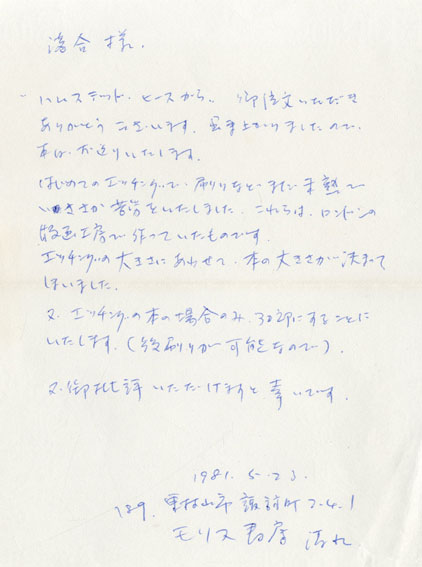 落合 様.
ハムステッド・ヒースから、御注文いただき
ありがとうございます。出来上りましたので、
本日、お送りいたします。
はじめてのエッチングで、刷りなど、まだ未熟で
いささか苦労をいたしました。これらは、ロンドンの
版画工房で作っていたものです。
エッチングの大きさにあわせて、本の大きさが決まって
しまいました。
又、エッチングの本の場合のみ、30部にすることに
いたします。(後刷りが可能なので)。
又、御批評いただけますと幸いです。
1981. 5. 23
189. 東村山市諏訪町 2-4-1
モリス書房